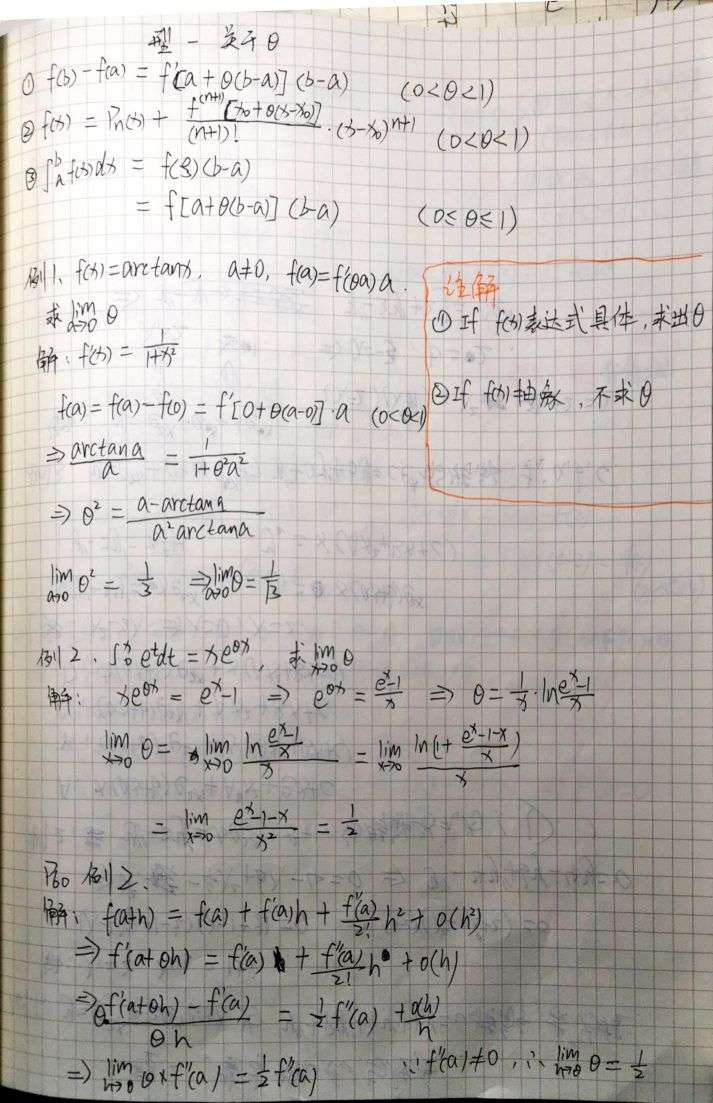 型一 关于θ
① f(b)-f(a) = f'[a+θ(b-a)](b-a) (0<θ<1)
② f(x) = Pn(x) + \frac{f^{(n+1)}[x₀+θ(x-x₀)]}{(n+1)!}·(x-x₀)^{n+1} (0<θ<1)
③ ∫_a^b f(x)dx = f(ξ)(b-a)
= f[a+θ(b-a)](b-a) (0≤θ≤1)
例1、f(x)=arctanx, a≠0, f(a)=f'(θa)a.
求 \lim_{a→0} θ
解: f'(x) = \frac{1}{1+x²}
f(a) = f(a)-f(0) = f'[0+θ(a-0)]·a (0<θ<1)
⇒ \frac{arctana}{a} = \frac{1}{1+θ²a²}
⇒ θ² = \frac{a-arctana}{a²arctana}
\lim_{a→0} θ² = \frac{1}{3} ⇒ \lim_{a→0} θ = \frac{1}{√3}
注解
① If f(x)表达式具体, 求出θ
② If f(x)抽象, 不求θ
例2、∫_0^x e^t dt = xe^{θx}, 求 \lim_{x→0} θ
解: xe^{θx} = e^x-1 ⇒ e^{θx} = \frac{e^x-1}{x} ⇒ θ = \frac{1}{x}·ln\frac{e^x-1}{x}
\lim_{x→0} θ = \lim_{x→0} \frac{ln\frac{e^x-1}{x}}{x} = \lim_{x→0} \frac{ln(1+\frac{e^x-1-x}{x})}{x}
= \lim_{x→0} \frac{e^x-1-x}{x²} = \frac{1}{2}
P60 例2.
解: f(a+h) = f(a) + f'(a)h + \frac{f''(a)}{2!}h² + o(h²)
⇒ f'(a+θh) = f'(a) + \frac{f''(a)}{2!}h + o(h)
⇒ θ·\frac{f'(a+θh)-f'(a)}{θh} = \frac{1}{2}f''(a) + \frac{o(h)}{h}
⇒ \lim_{h→0} θ×f''(a) = \frac{1}{2}f''(a) ∵ f''(a)≠0, ∴ \lim_{h→0} θ = \frac{1}{2}